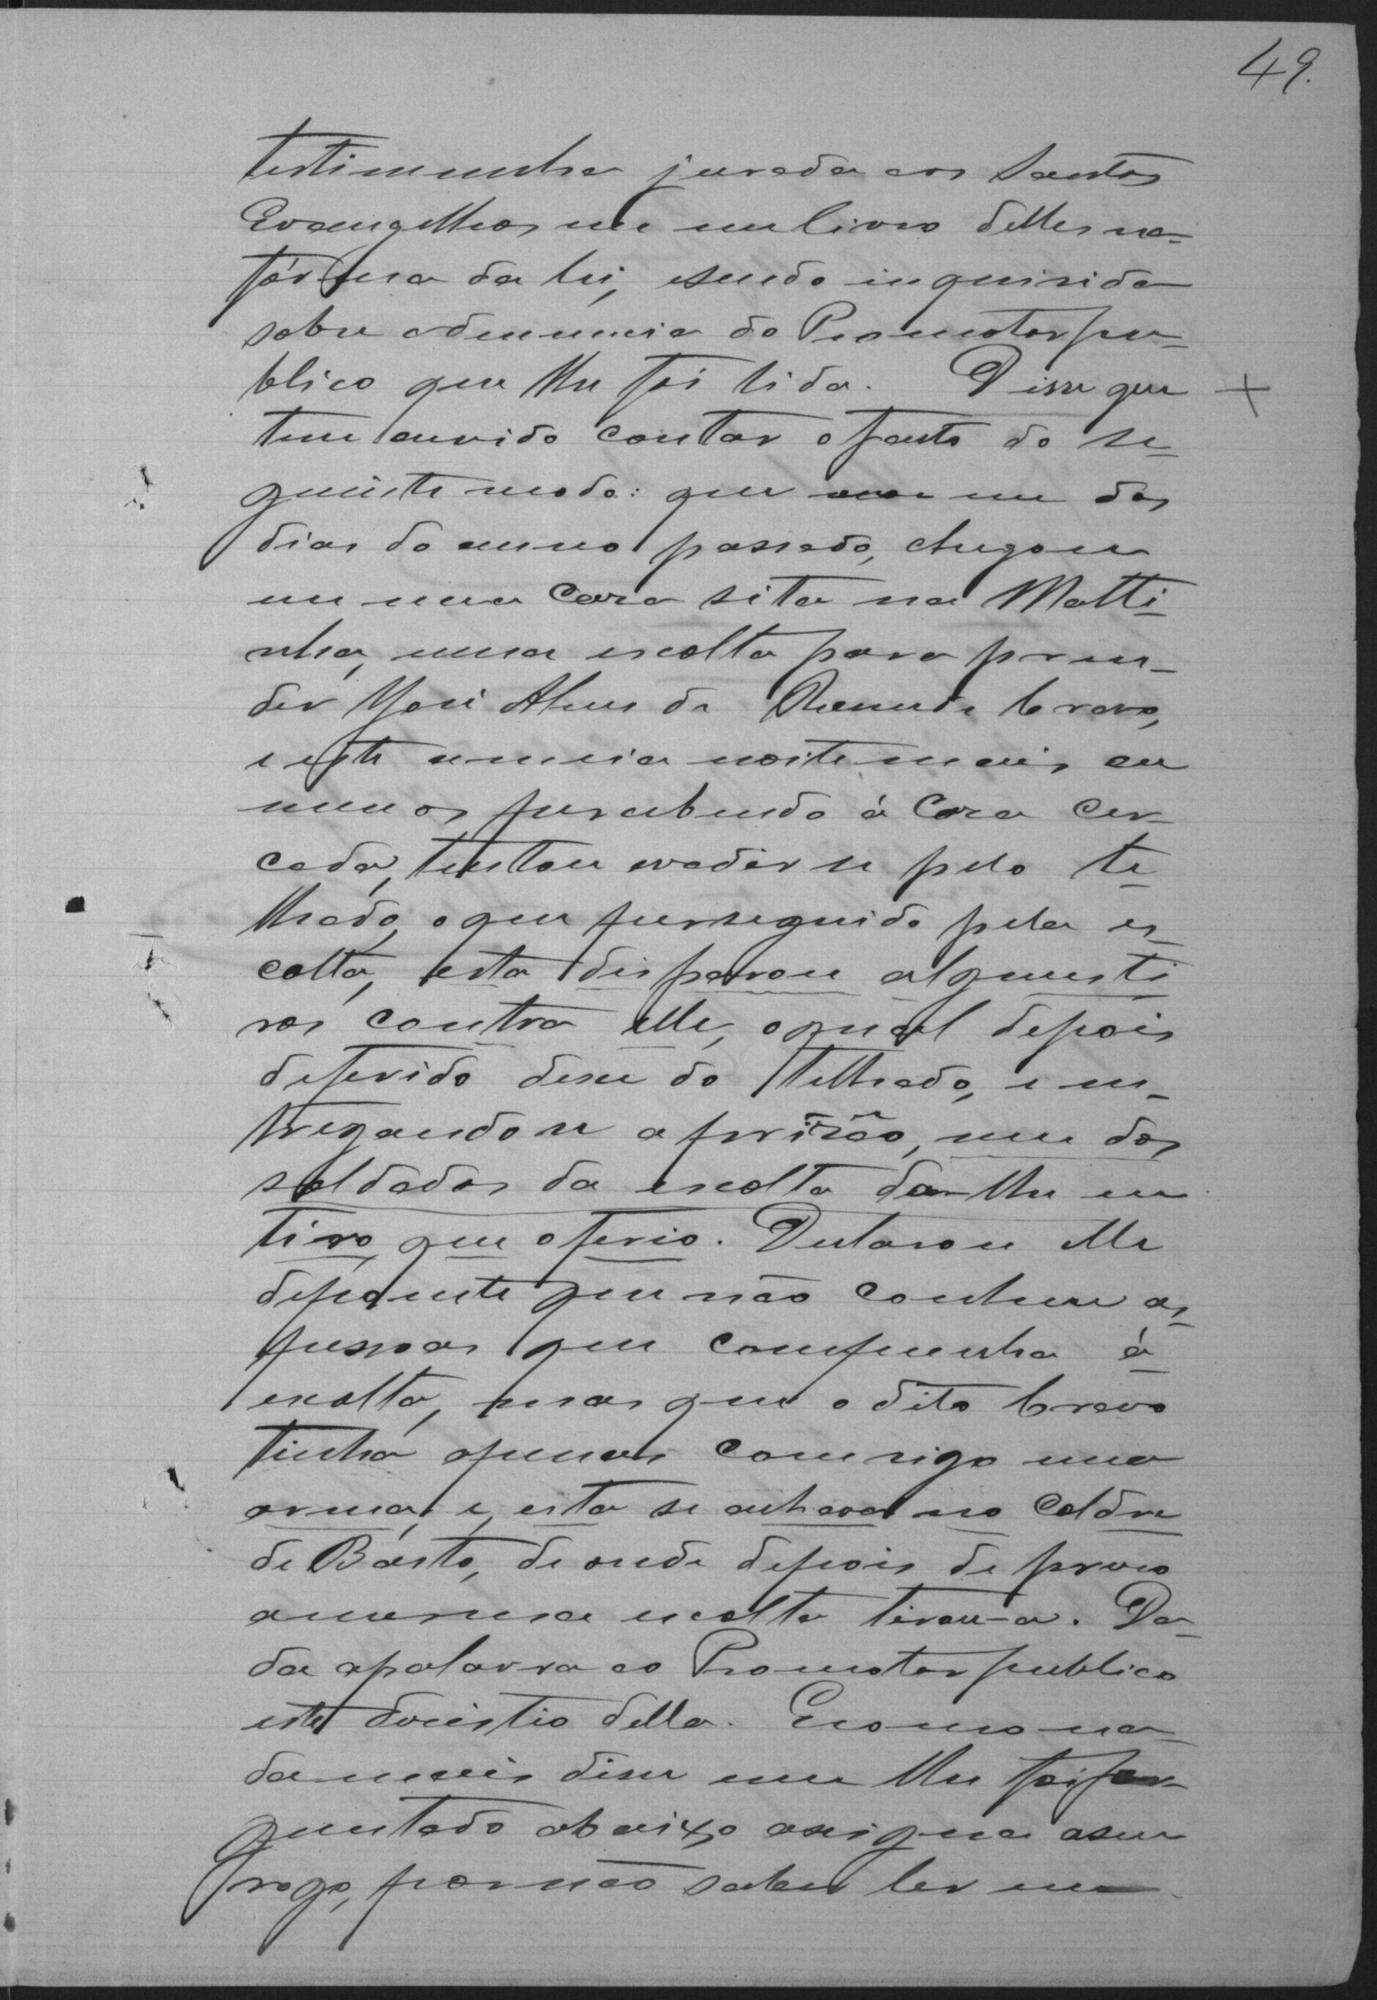 49.
testimunha jurada aos Santos
Evangelhos em um livro delles na
fórma da lei, esendo inquirida
sobre adenuncia do Promotor pu-
blico que lhe foi lida. Disse que
tem ouvido contar o facto do se-
guinte modo: que em um dos
dias do anno passado, chegou
em uma casa sita na Matti-
nha, uma escolta para pren-
der José Alves de Cravo,
e este a meia noite mais ou
menos percebendo á casa cer-
cada, tentou evadir se pelo te-
lhado, o que perseguido pela es-
colta, esta disparou alguns ti-
ros contra elle, oqual depois
deferido desce do telhado, e en-
tregando se a prizão, um dos
soldados da escolta da-lhe um
tiro, que oferio. Declarou elle
depoente que não conhece as
pessoas que compunha á
escolta, mas que o dito Cravo
tinha apenas comsigo uma
arma, e esta se achava no coldre
de Basto, de onde depois de preso
amesma escolta tirou-a. Da-
da apalavra ao Promotor publico
este desistio della. E como na-
da mais disse nem lhe foi per-
guntado abaixo assigna aseu
rogo, por não saber ler nem